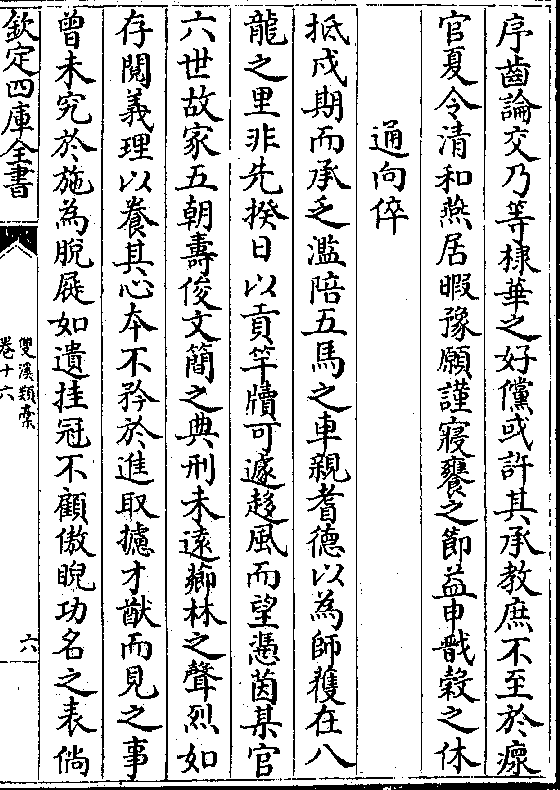 序齒論交乃等棣華之好儻或許其承教庶不至於瘝
官夏令清和燕居暇豫願謹寢饔之節益申戬榖之休
通向倅
抵戍期而承乏濫陪五馬之車親耆德以為師獲在八
龍之里非先揆日以貢竿牘可遽趍風而望憑茵某官
六世故家五朝壽俊文簡之典刑未遠薌林之聲烈如
存閱義理以養其心本不矜於進取攄才猷而見之事
曾未究於施為脫屣如遺挂冠不顧傲睨功名之表倘
欽定四庫全書
雙溪類稾
卷十六
六